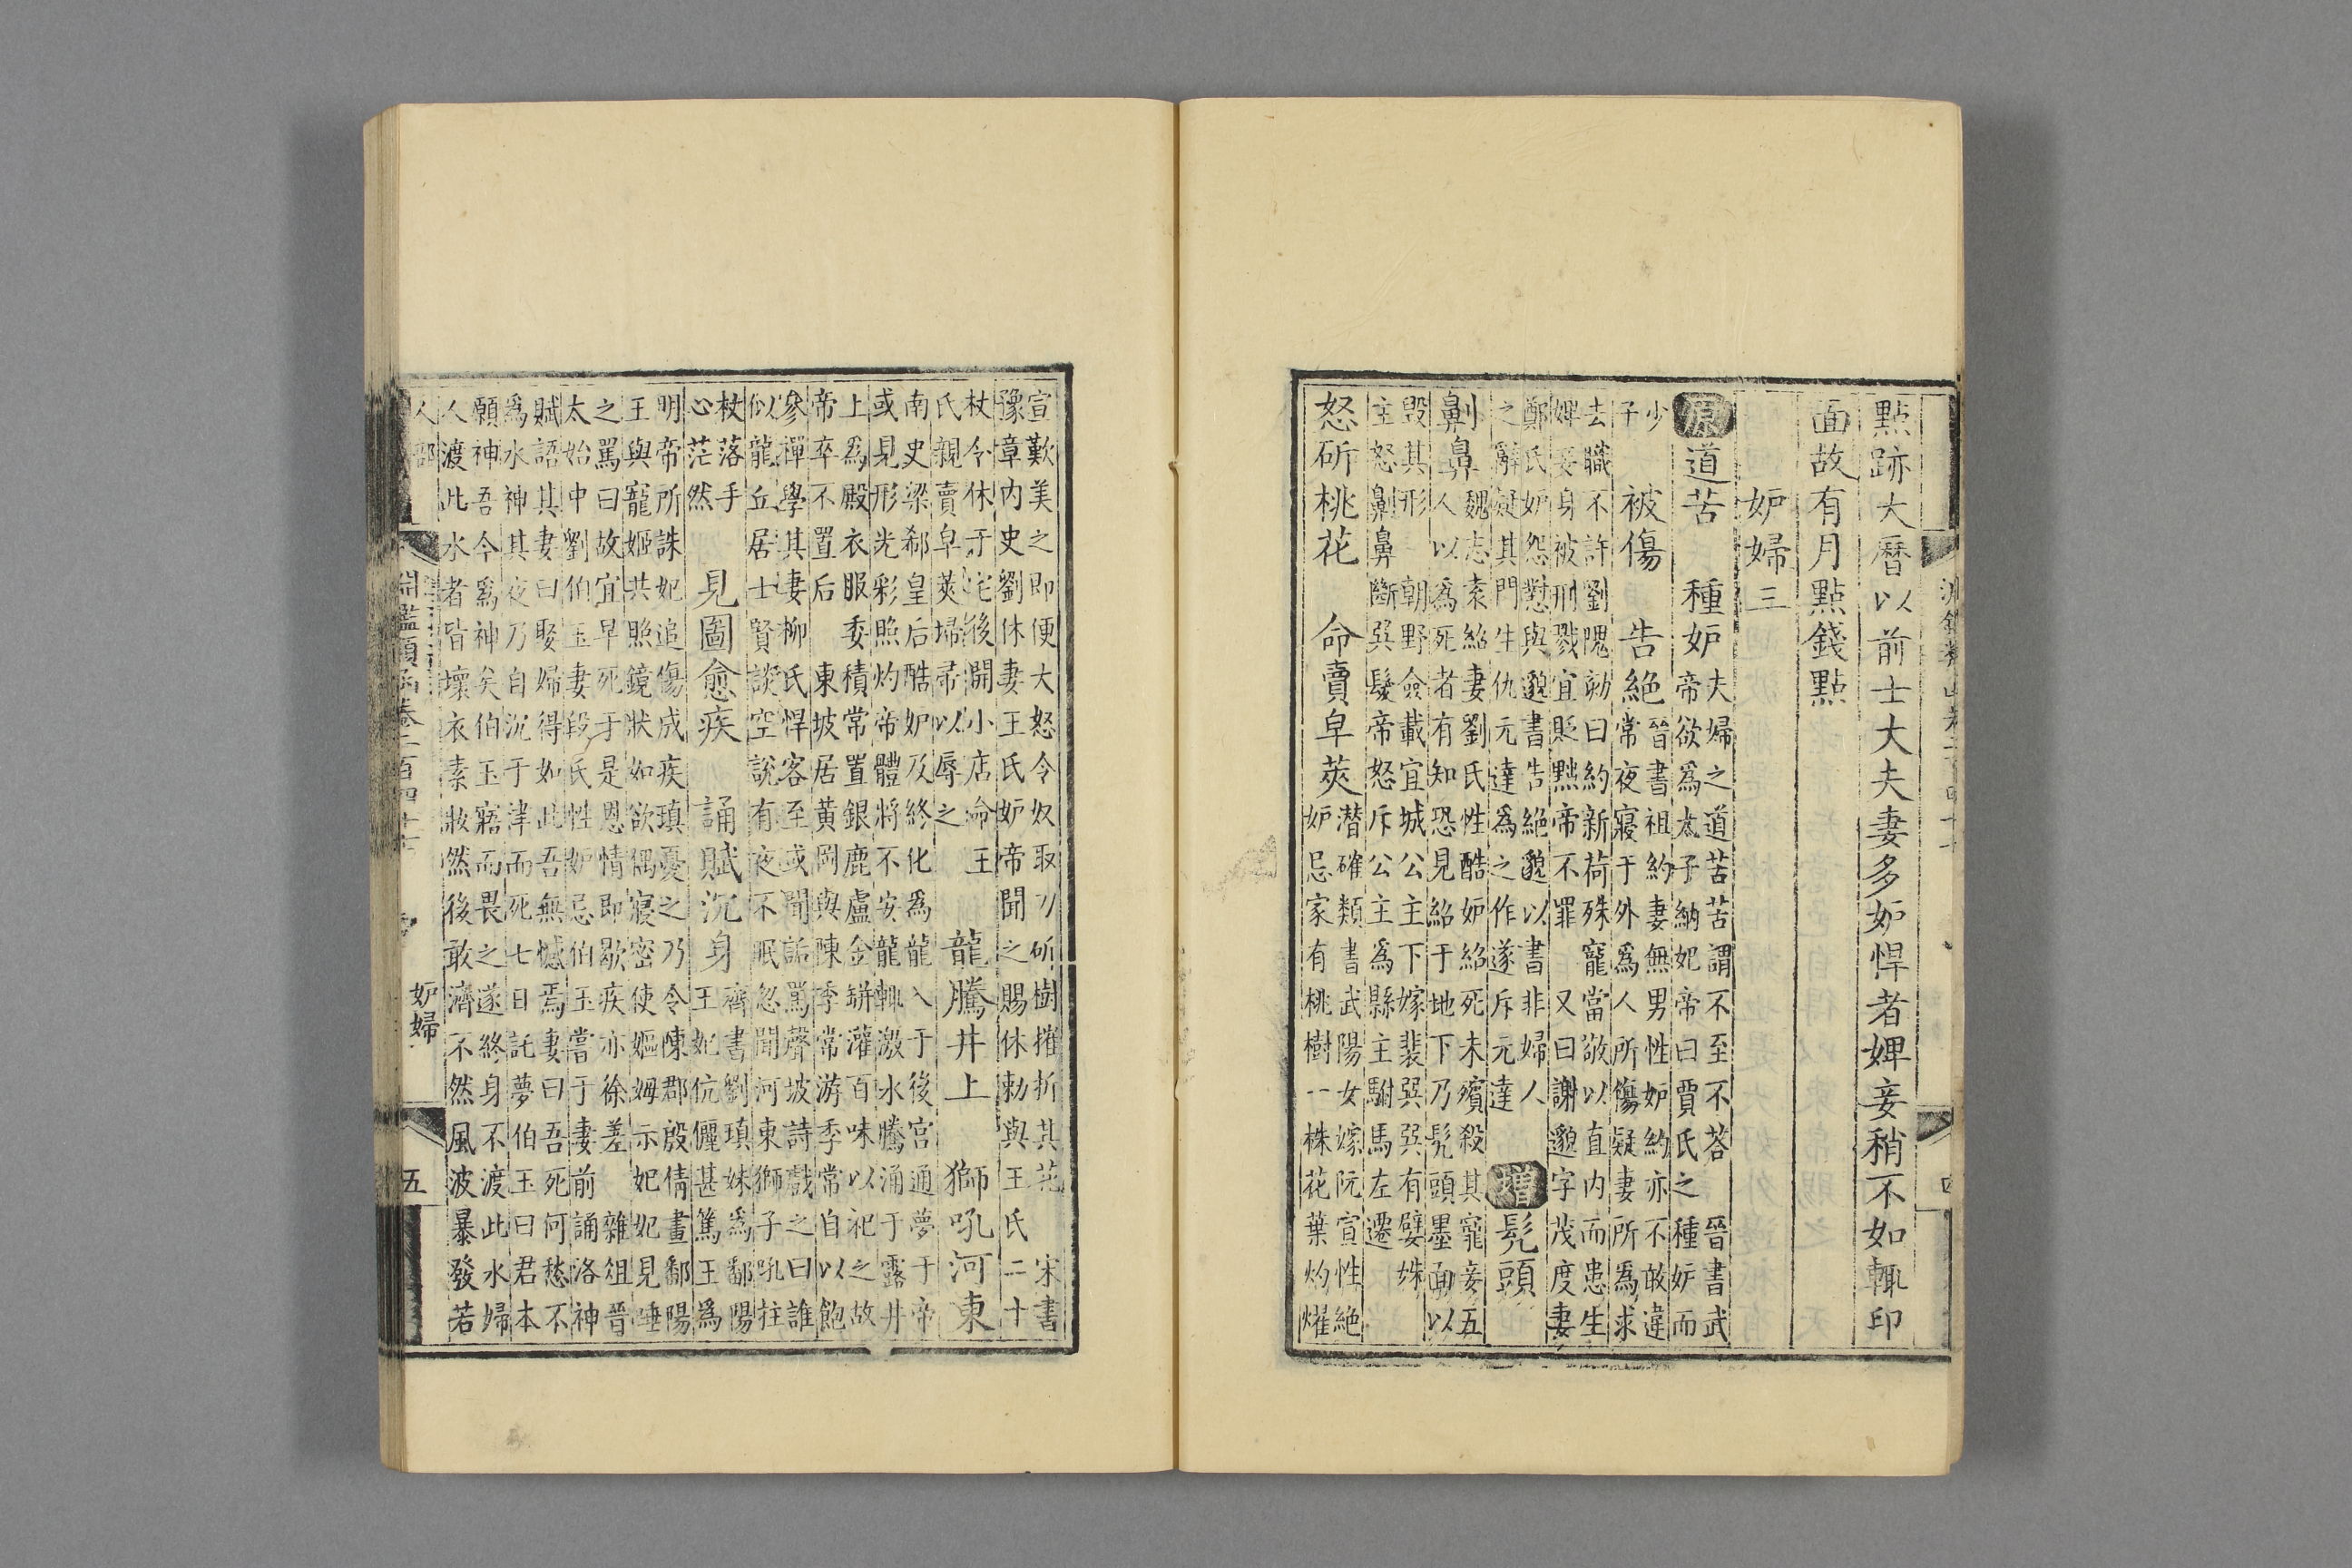 點跡大曆以前士大夫妻多妒悍者婢妾稍不如輒印
面故有月點錢點
妒婦三
原道苦 種妒
夫婦之道苦苦謂不至不荅 晉書武
帝欲爲太子納妃帝曰賈氏之種妒而
少
子
被傷 告絕
晉書祖約妻無男性妒約亦不敢違
常夜寢于外爲人所傷疑妻所爲求
去職不許劉隗劾曰約新荷殊寵當敬以直内而患生
婢妾身被刑戮宜貶黜帝不罪 又曰謝邈字茂度妻
鄭氏妒怨懟與邈書告絕邈以書非婦人
之辭疑其門生仇元達爲之作遂斥元達
增髡頭
劓鼻
魏志袁紹妻劉氏性酷妒紹死未殯殺其寵妾五
人以爲死者有知恐見紹于地下乃髡頭墨面以
毀其形 朝野僉載宜城公主下嫁裴巽巽有嬖姝
主怒劓鼻斷巽髮帝怒斥公主爲縣主駙馬左遷
怒斫桃花 命賣皁莢
潛確類書武陽女嫁阮宣性絕
妒忌家有桃樹一株花葉灼燿
四
宣歎美之即便大怒令奴取刀斫樹摧折其花 宋書
豫章内史劉休妻王氏妒帝聞之賜休勑與王氏二十
杖令休于宅後開小店命王
氏親賣皁莢埽帚以辱之
龍騰井上 獅吼河東
南史梁郗皇后酷妒及終化爲龍入于後宮通夢于帝
或見形光彩照灼帝體將不安龍輒激水騰涌于露井
上爲殿衣服委積常置銀鹿盧金缾灌百味以祀之故
帝卒不置后 東坡居黄岡與陳季常游季常自以飽
參禪學其妻柳氏悍客至或聞詬罵聲坡詩戲之曰誰
似龍丘居士賢談空說有夜不眠忽聞河東獅子吼拄
杖落手
心茫然
見圖愈疾 誦賦沉身
齊書劉瑱妹爲鄱陽
王妃伉儷甚篤王爲
明帝所誅妃追傷成疾瑱憂之乃令陳郡殷倩畫鄱陽
王與寵姬共照鏡狀如欲偶寢密使嫗姆示妃妃見唾
之罵曰故宜早死于是恩情即歇疾亦徐差 雜俎晉
太始中劉伯玉妻段氏性妒忌伯玉嘗于妻前誦洛神
賦語其妻曰娶婦得如此吾無憾焉妻曰吾死何愁不
爲水神其夜乃自沉于津而死七日託夢伯玉曰君本
願神吾今爲神矣伯玉寤而畏之遂終身不渡此水婦
人渡此水者皆壞衣素粧然後敢濟不然風波暴發若
人部
淵鑑類函卷二百四十七
妒婦
五